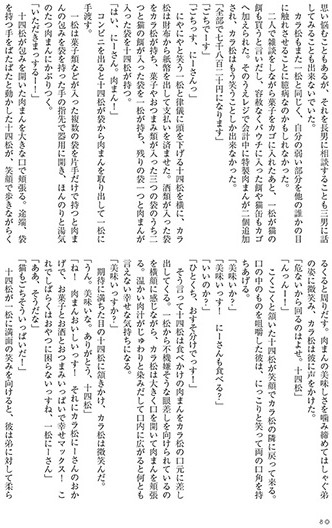 思い悩むこともあるが、それを長男に相談することも三男に話
してみることも出来ないでいた。
カラ松もまた一松と同じく、自分の弱い部分を他の誰かの目
に触れさせることに臆病なのかもしれなかった。
二人で雑談をしながら菓子をカゴに入れたあと、一松が猫の
餌も買うと言いだし、容赦なくパウチに入った餌や猫缶もカゴ
へ加えられた。そのうえレジで会計中に特製肉まんが二個追加
され、カラ松はもう笑うことしか出来なかった。
「全部で七千八百二十円になります」
「ごちでーす」
「ごちっす、にーさんっ」
にやにやと笑う一松と律儀に頭を下げる十四松を横に、カラ
松は財布から紙幣を出して支払いを済ませた。酒類が入った袋
を松が持ち、菓子とおつまみ類が入った三つの袋のうち二
つと猫の餌が入った袋を一松が持ち、残りの袋一つと肉まんが
入った袋を十四松が持つ。
「はい、にーさん。肉まん!」
コンビニを出ると十四松が袋から肉まんを取り出して一松に
手渡す。
一松は菓子類などが入った複数の袋を片手だけで持つと肉ま
んの包みを袋を持った手の指先で器用に開き、ほんのりと湯気
のたつ肉まんにかぶりつく。
「いただきまっするー!」
十四松が包みを開いた肉まんを大きな口で頬張る。途端、袋
を持つ手をばたばたと動かした十四松が、笑顔で歩きながらく
るくると周りだす。肉まんの美味しさを噛み締めてはしゃぐ弟
の姿に微笑み、カラ松は彼に声をかけた。
「危ないから回るのはよせ、十四松」
「んっんー!」
こくこくと頷いた十四松が笑顔でカラ松の隣に戻って来る。
口の中のものを咀嚼した彼は、にっこりと笑って両の口角を持
ちあげる。
「美味いか?」
「美味いっす! にーさんも食べる?」
「いいのか?」
「ひとくち、おすそ分けでっす!」
そう言って十四松は食べかけの肉まんをカラ松の口元に差し
出してくる。一松から不機嫌そうな眼差しを向けられているの
を横顔に感じながら、カラ松は大きく口を開いて肉まんを頬張
る。温かい肉汁がじゅわりと染みだして口内に広がると何とも
言えない幸せな気持ちになる。
「美味いっすか?」
期待に満ちた目の十四松に頷きかけ、カラ松は微笑んだ。
「うん。美味いな。ありがとう、十四松」
「ね! 肉まんおいしいっす! それにカラ松にーさんのおか
げで、お菓子とお酒とおつまみいっぱいで幸せマックス! こ
れでしばらくはおやつに困らないっすね、一松にーさん」
「ああ、そうだな」
「猫もごちそういっぱいだー!」
十四松が一松に満面の笑みを向けると、彼は弟に対して柔ら